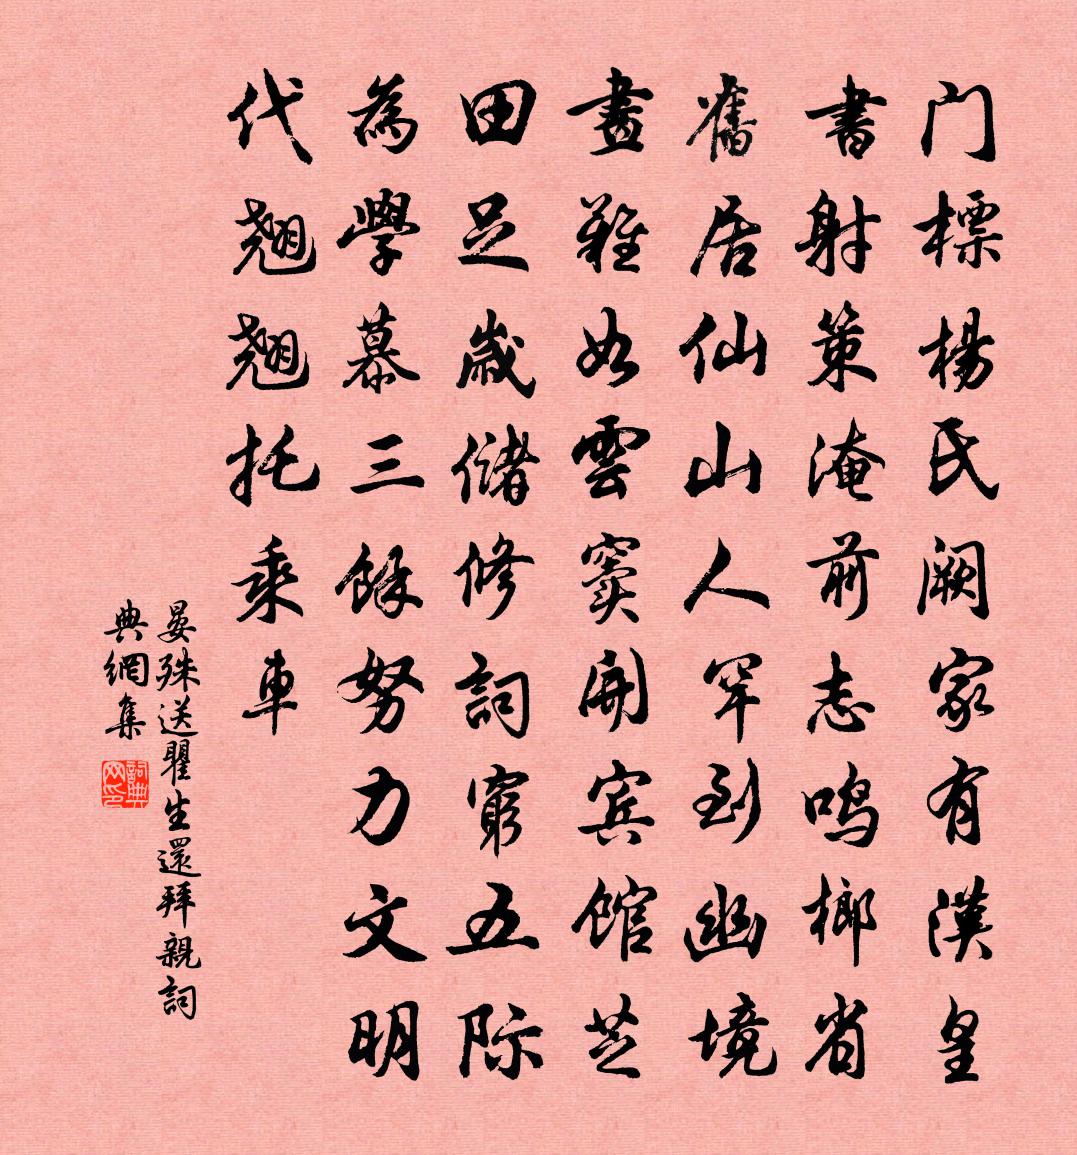 门標楊氏阙家有漢皇
書射策淹前志鸣榔省
舊居仙山人罕到幽境
畫難如雲窦開宾馆芝
田足歳儲修詞窮五际
為學慕三餘努力文明
代翘翘托乘車
晏殊送瞿生還拜親詞
典網集
詞典网印